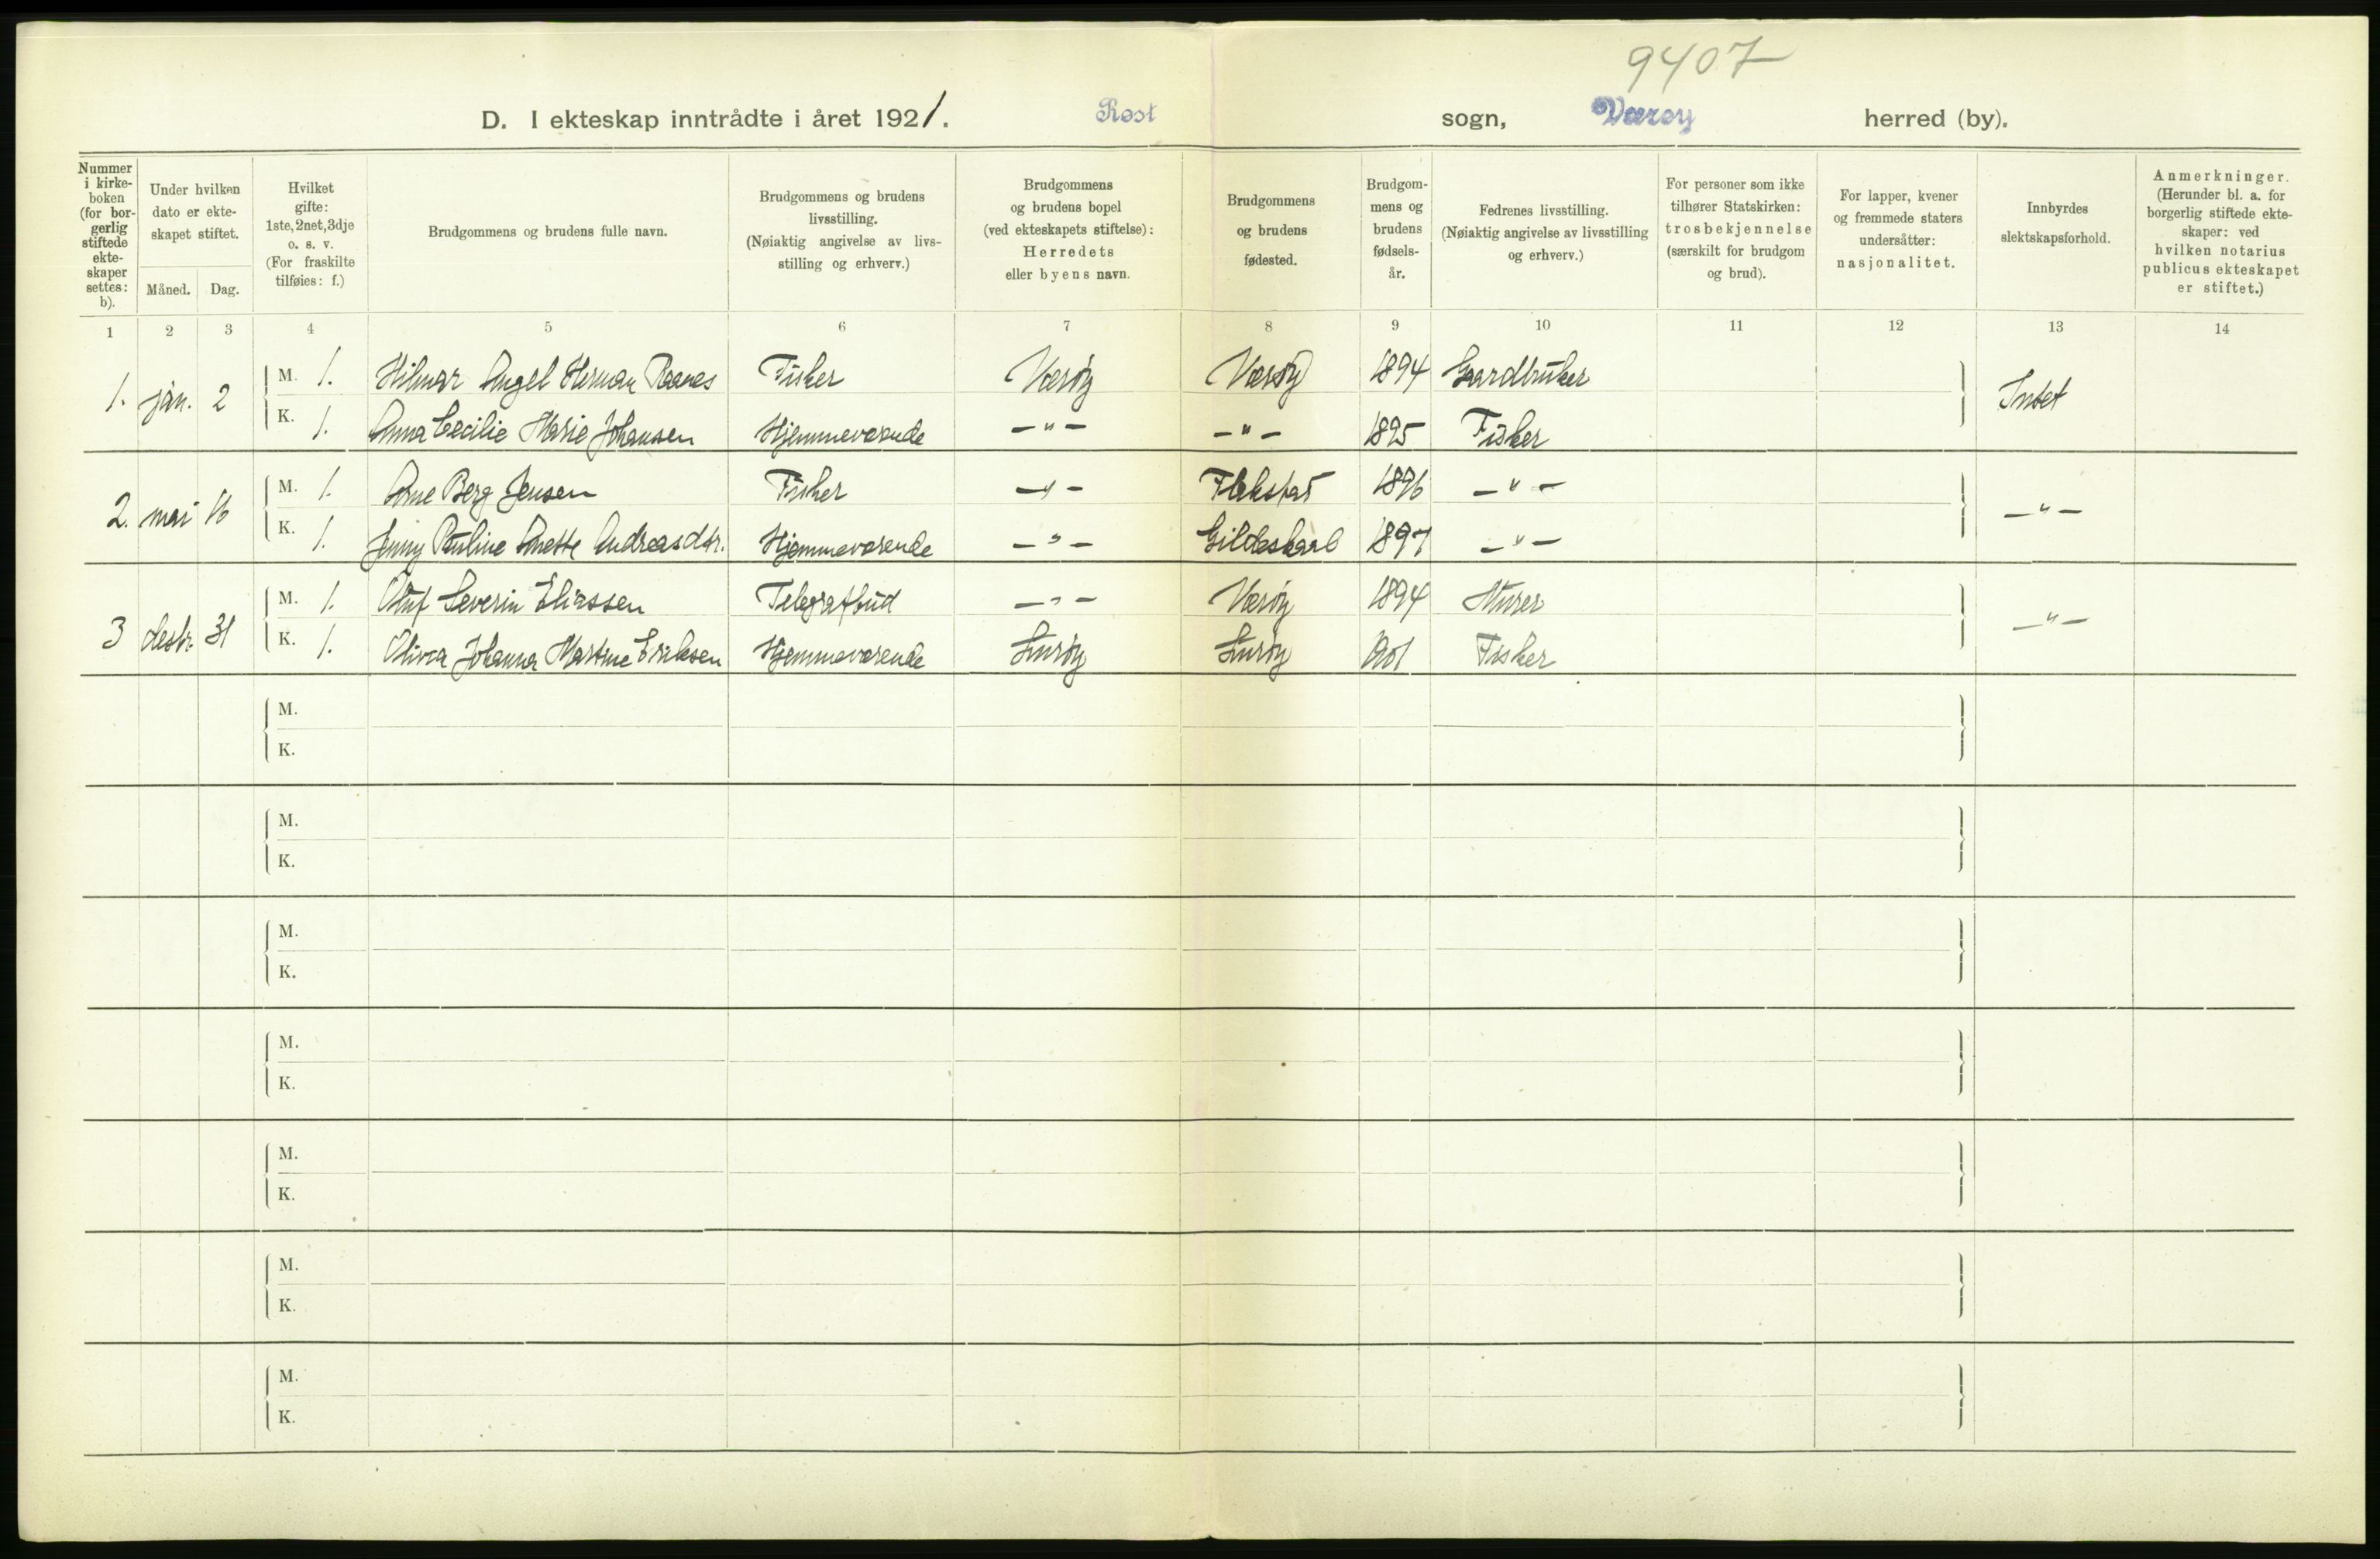 9407
D. I ekteskap inntrådte i året 1921. Røst sogn, Værøy herred (by).
Nummer i kirkeboken (for borgerlig stiftede ekteskaper settes: b).
Under hvilken dato er ekteskapet stiftet.
Måned. Dag.
Hvilket gifte: 1ste, 2net, 3dje o. s. v. (For fraskilte tilføies: f.)
Brudgommens og brudens fulle navn.
Brudgommens og brudens livsstilling. (Nøiaktig angivelse av livsstilling og erhverv.)
Brudgommens og brudens bopel (ved ekteskapets stiftelse): Herredets eller byens navn.
Brudgommens og brudens fødested.
Brudgommens og brudens fødselsår.
Fedrenes livsstilling. (Nøiaktig angivelse av livsstilling og erhverv.)
For personer som ikke tilhører Statskirken: trosbekjennelse (særskilt for brudgom og brud).
For lapper, kvener og fremmede staters undersåtter: nasjonalitet.
Innbyrdes slektskapsforhold.
Anmerkninger. (Herunder bl. a. for borgerlig stiftede ekteskaper: ved hvilken notarius publicus ekteskapet er stiftet.)
1 2 3 4 5 6 7 8 9 10 11 12 13 14
1. jan. 2 M. 1. Hilmar Angel Herman Raanes Fisker Værøy Værøy 1894 Gaardbruker Intet
K. 1. Anna Cecilie Marie Johansen Hjemmeværende -"- -"- 1895 Fisker
2. mai 16 M. 1. Arne Berg Jensen Fisker -"- Flakstad 1896 -"- -"-
K. 1. Jenny Pauline Anette Andreasdtr. Hjemmeværende -"- Gildeskaal 1897 -"-
3 desbr. 31 M. 1. Oluf Severin Eliassen Telegrafbud -"- Værøy 1894 Murer -"-
K. 1. Olivia Johanna Martine Eriksen Hjemmeværende Lurøy Lurøy 1901 Fisker
M.
K.
M.
K.
M.
K.
M.
K.
M.
K.
M.
K.
M.
K.